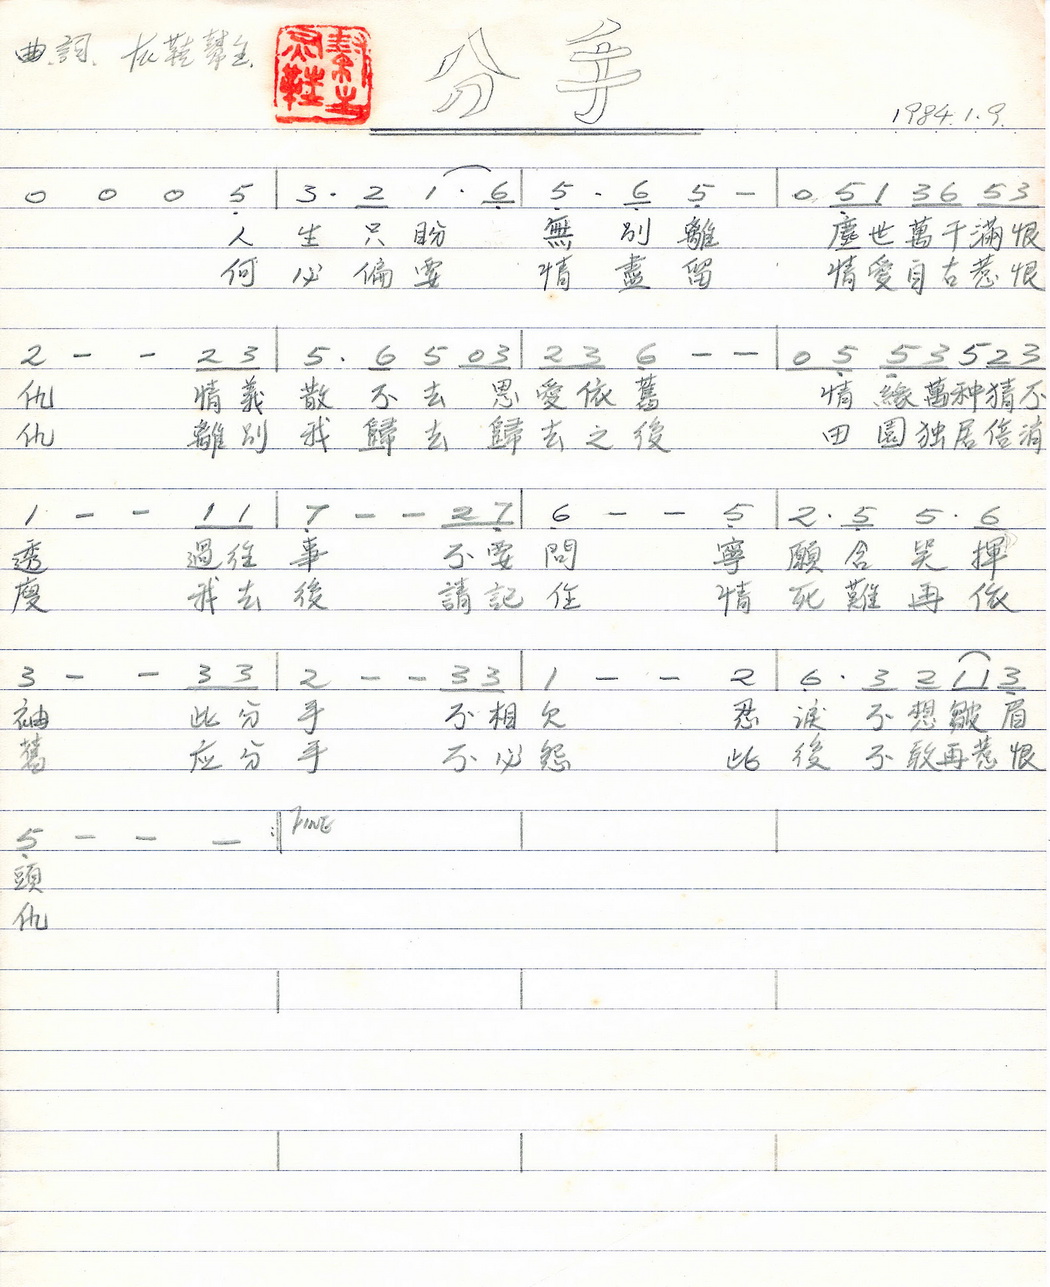 曲.詞. 衣鞋幫主.
分手
1984.1.9.
0 0 0 5 | 3 · 2 1 · 6 | 5 · 6 5 - | 0 5 1 3 6 5 3
人 生 只 盼 無 別 離 塵 世 萬 千 滿 恨
何 必 偏 要 情 盡 留 情 愛 自 古 惹 恨
2 - - 2 3 | 5 · 6 5 0 3 | 2 3 6 - - | 0 5 5 3 5 2 3
仇 情 義 散 不 去 恩 愛 依 舊 情 緣 萬 种 猜 不
仇 離 別 我 歸 去 歸 去 之 後 田 園 独 居 倍 消
1 - - 1 1 | 7 - - 2 7 | 6 - - 5 | 2 · 5 5 · 6
透 過 往 事 不 要 問 寧 願 含 哭 揮
廋 我 去 後 請 記 住 情 死 難 再 依
3 - - 3 3 | 2 - - 3 3 | 1 - - 2 | 6 · 3 2 1 1 3
袖 此 分 手 不 相 欠 忍 淚 不 想 皺 眉
舊 应 分 手 不 必 怨 此 後 不 敢 再 惹 恨
5 - - - :| FINE
頭
仇